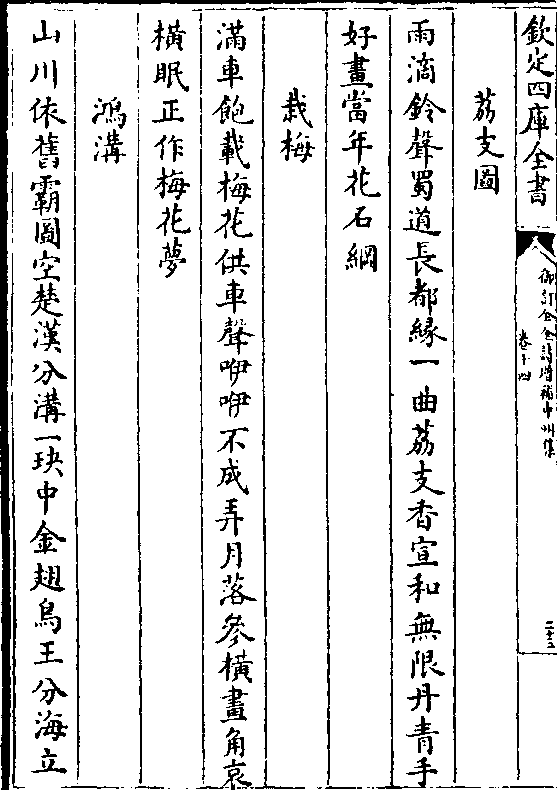 欽定四庫全書
御訂全金詩增補中州集
卷十四
二十三
荔支圖
雨滴鈴聲蜀道長都緣一曲荔支香宣和無限丹青手
好畫當年花石綱
栽梅
滿車飽載梅花供車聲咿咿不成弄月落參橫畫角哀
橫眠正作梅花夢
鴻溝
山川依舊霸圖空楚漢分溝一玦中金翅鳥王分海立